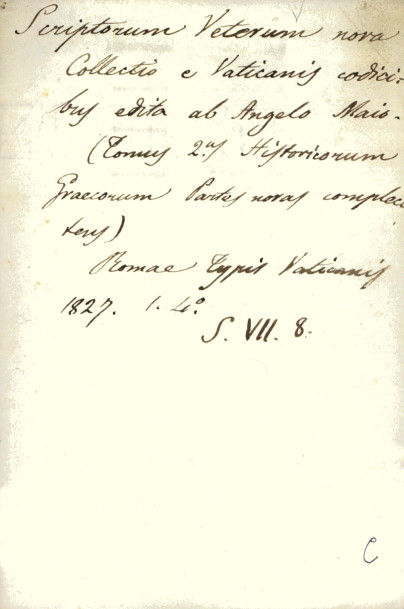 Scriptorum Veterum nova
Collectio e Vaticanis codici-
bus edita ab Angelo Maio.
(Tomus 2.us Historicorum
Graecorum Partes novas complec
tens)
Romae Typis Vaticanis
1827. 1. 4.o
S. VII. 8.
C